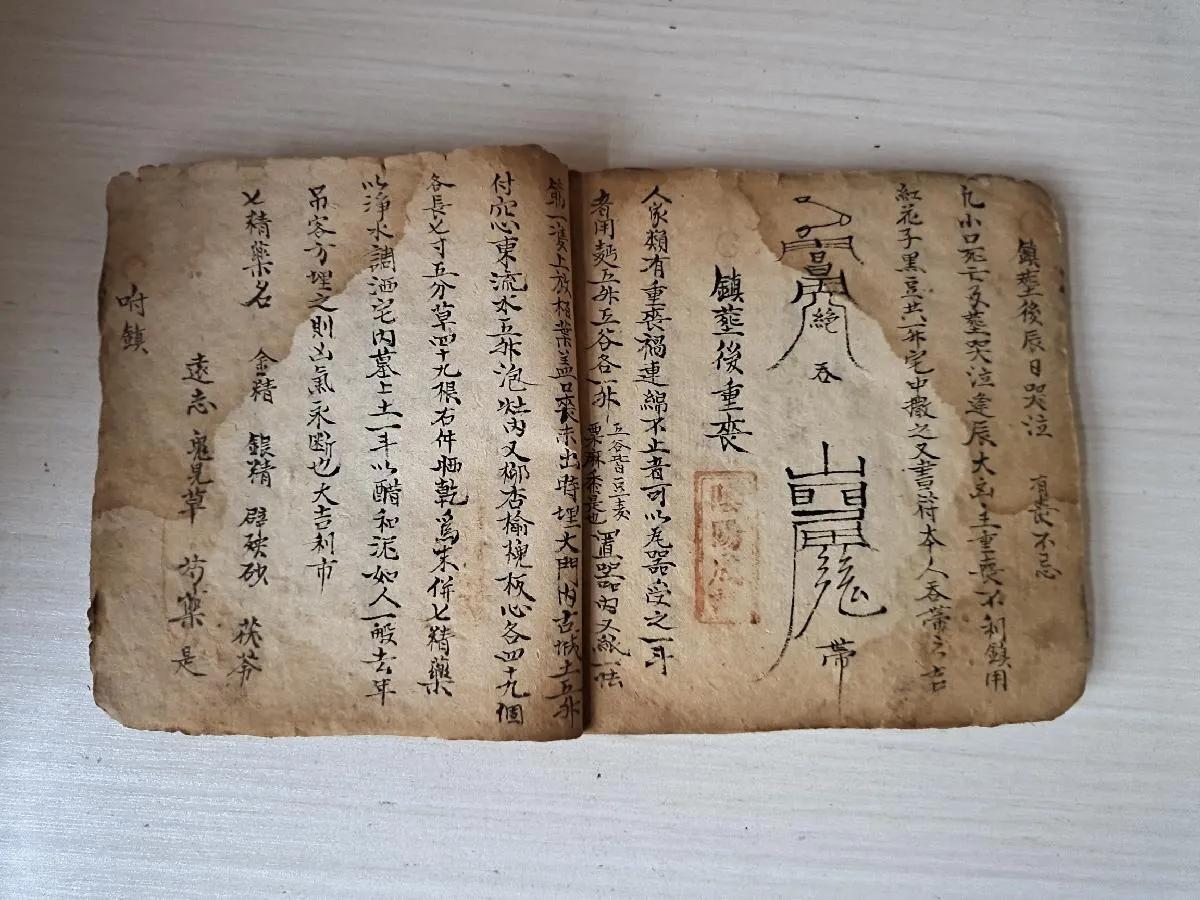 鎮塟後辰日哭泣 有喪不忌
凡小口死亡及塟哭泣逢辰大凶主重喪不利鎮用
紅花子黑豆共一升宅中撒之又書符本人吞帶之吉
絶 吞 帶
鎮塟後重喪
陰陽
人家頻有重喪禍連綿不止者可以瓦器受之一斗
者用麺五升五谷各一升 五谷皆豆麦粟麻黍是也 置器內又紙一帖
筯一隻上放柏葉盖口喪未出時埋大門內古城土五升
付穴心東流水五升泡炒內又柳杏榆槐板心各四十九個
各長七寸五分草四十九根右件晒乾爲末併七精藥
以淨水調洒宅內墓上土一斗以醋和泥如人一般去年
吊客方埋之則凶氣永断也大吉利市
七精藥名 金精 銀精 辟砆砂 茯苓
遠志 鬼見草 坊藥是
咐鎮